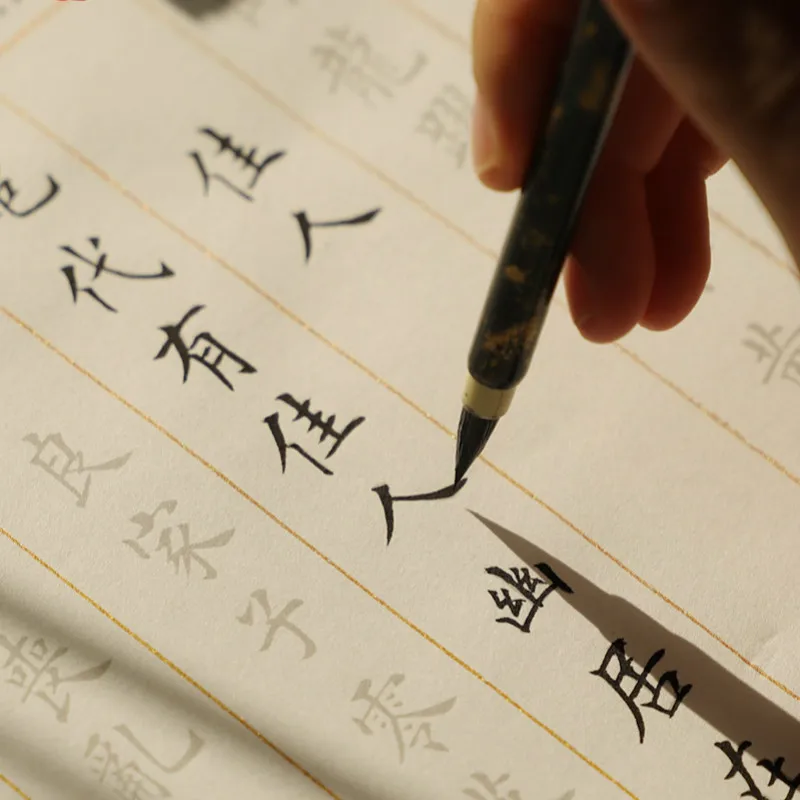 龍
佳人
代有佳人幽居在
良家子零
喪亂